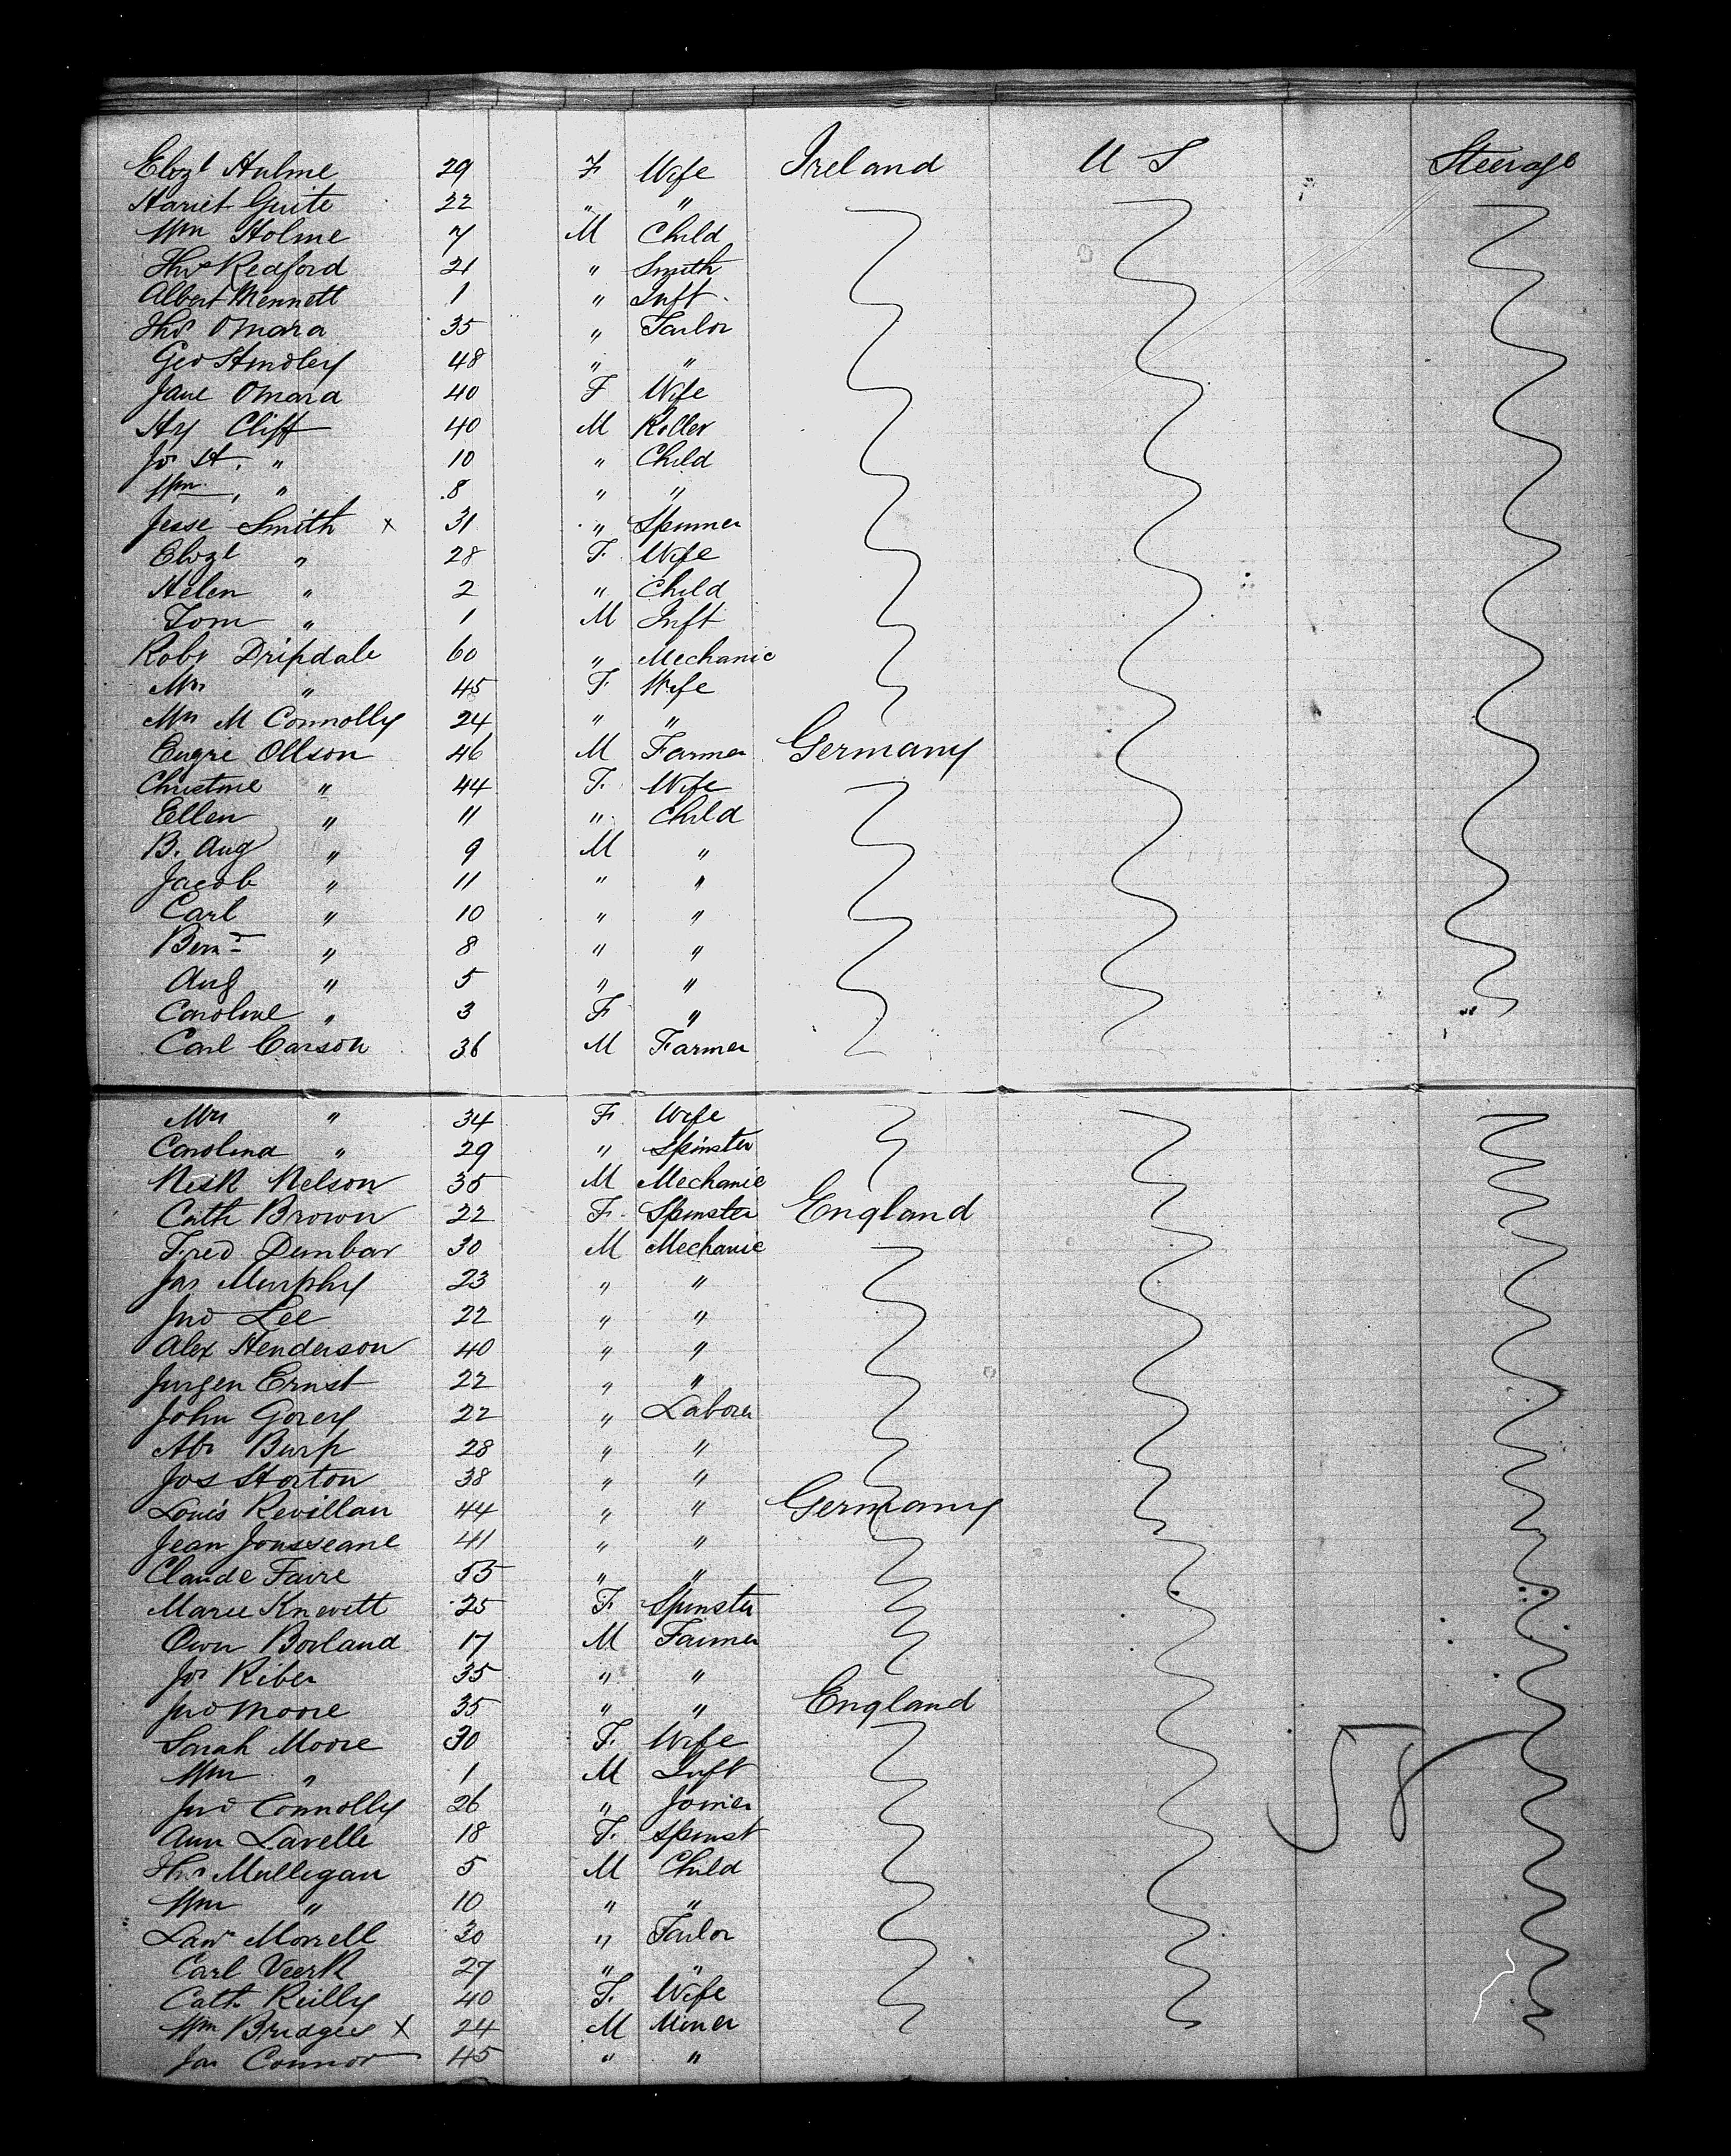 Elizt Hulme 29 F Wife Ireland U S Steerage
Hariet Guite 22 " "
Wm Holme 7 M Child
Thos Redford 21 " Smith
Albert Mennett 1 " Inft.
Thos OMara 35 " Tailor
Geo Hindley 48 " "
Jane OMara 40 F Wife
Hy Cliff 40 M Roller
Jos H. " 10 " Child
Wm " 8 " "
Jesse Smith x 31 " Spinner
Elizt " 28 F. Wife
Helen " 2 " Child
Tom " 1 M Inft
Robt Dripdale 60 " Mechanic
Mrs " 45 F Wife
Mrs M Connolly 24 " "
Ollson 46 M Farmer Germany
Christine " 44 F. Wife
Ellen " 11 " Child
B. Aug " 9 M "
Jacob " 11 " "
Carl " 10 " "
" 8 " "
Aug " 5 " "
Caroline " 3 F "
Carl Carson 36 M Farmer
Mrs " 34 F. Wife
Carolina " 29 " Spinster
Nelson 35 M Mechanic
Cath Brown 22 F. Spinster England
Fred Dunbar 30 M Mechanic
Jas Murphy 23 " "
Jno Lee 22 " "
Alex Henderson 40 " "
Jurgen Ernst 22 " "
John Gorey 22 " Laborer
Abr Burp 28 " "
Jos Horton 38 " "
Louis Revillan 44 " " Germany
Jean Jousseane 41 " "
Claude Faire 55 " "
Marie Knevett 25 F Spinster
Owen Borland 17 M Farmer
Jos Riber 35 " "
Jno Moore 35 " " England
Sarah Moore 30 F. Wife
Wm " 1 M Inft
Jno Connolly 26 " Joiner
Ann Lavelle 18 F. Spinst
Thos Mulligan 5 M Child
Wm " 10 " "
Lawr Morrell 30 " Tailor
Carl Veerk 27 " "
Cath Reilly 40 F. Wife
Wm Bridges x 24 M Miner
Jas Connor 45 " "
58